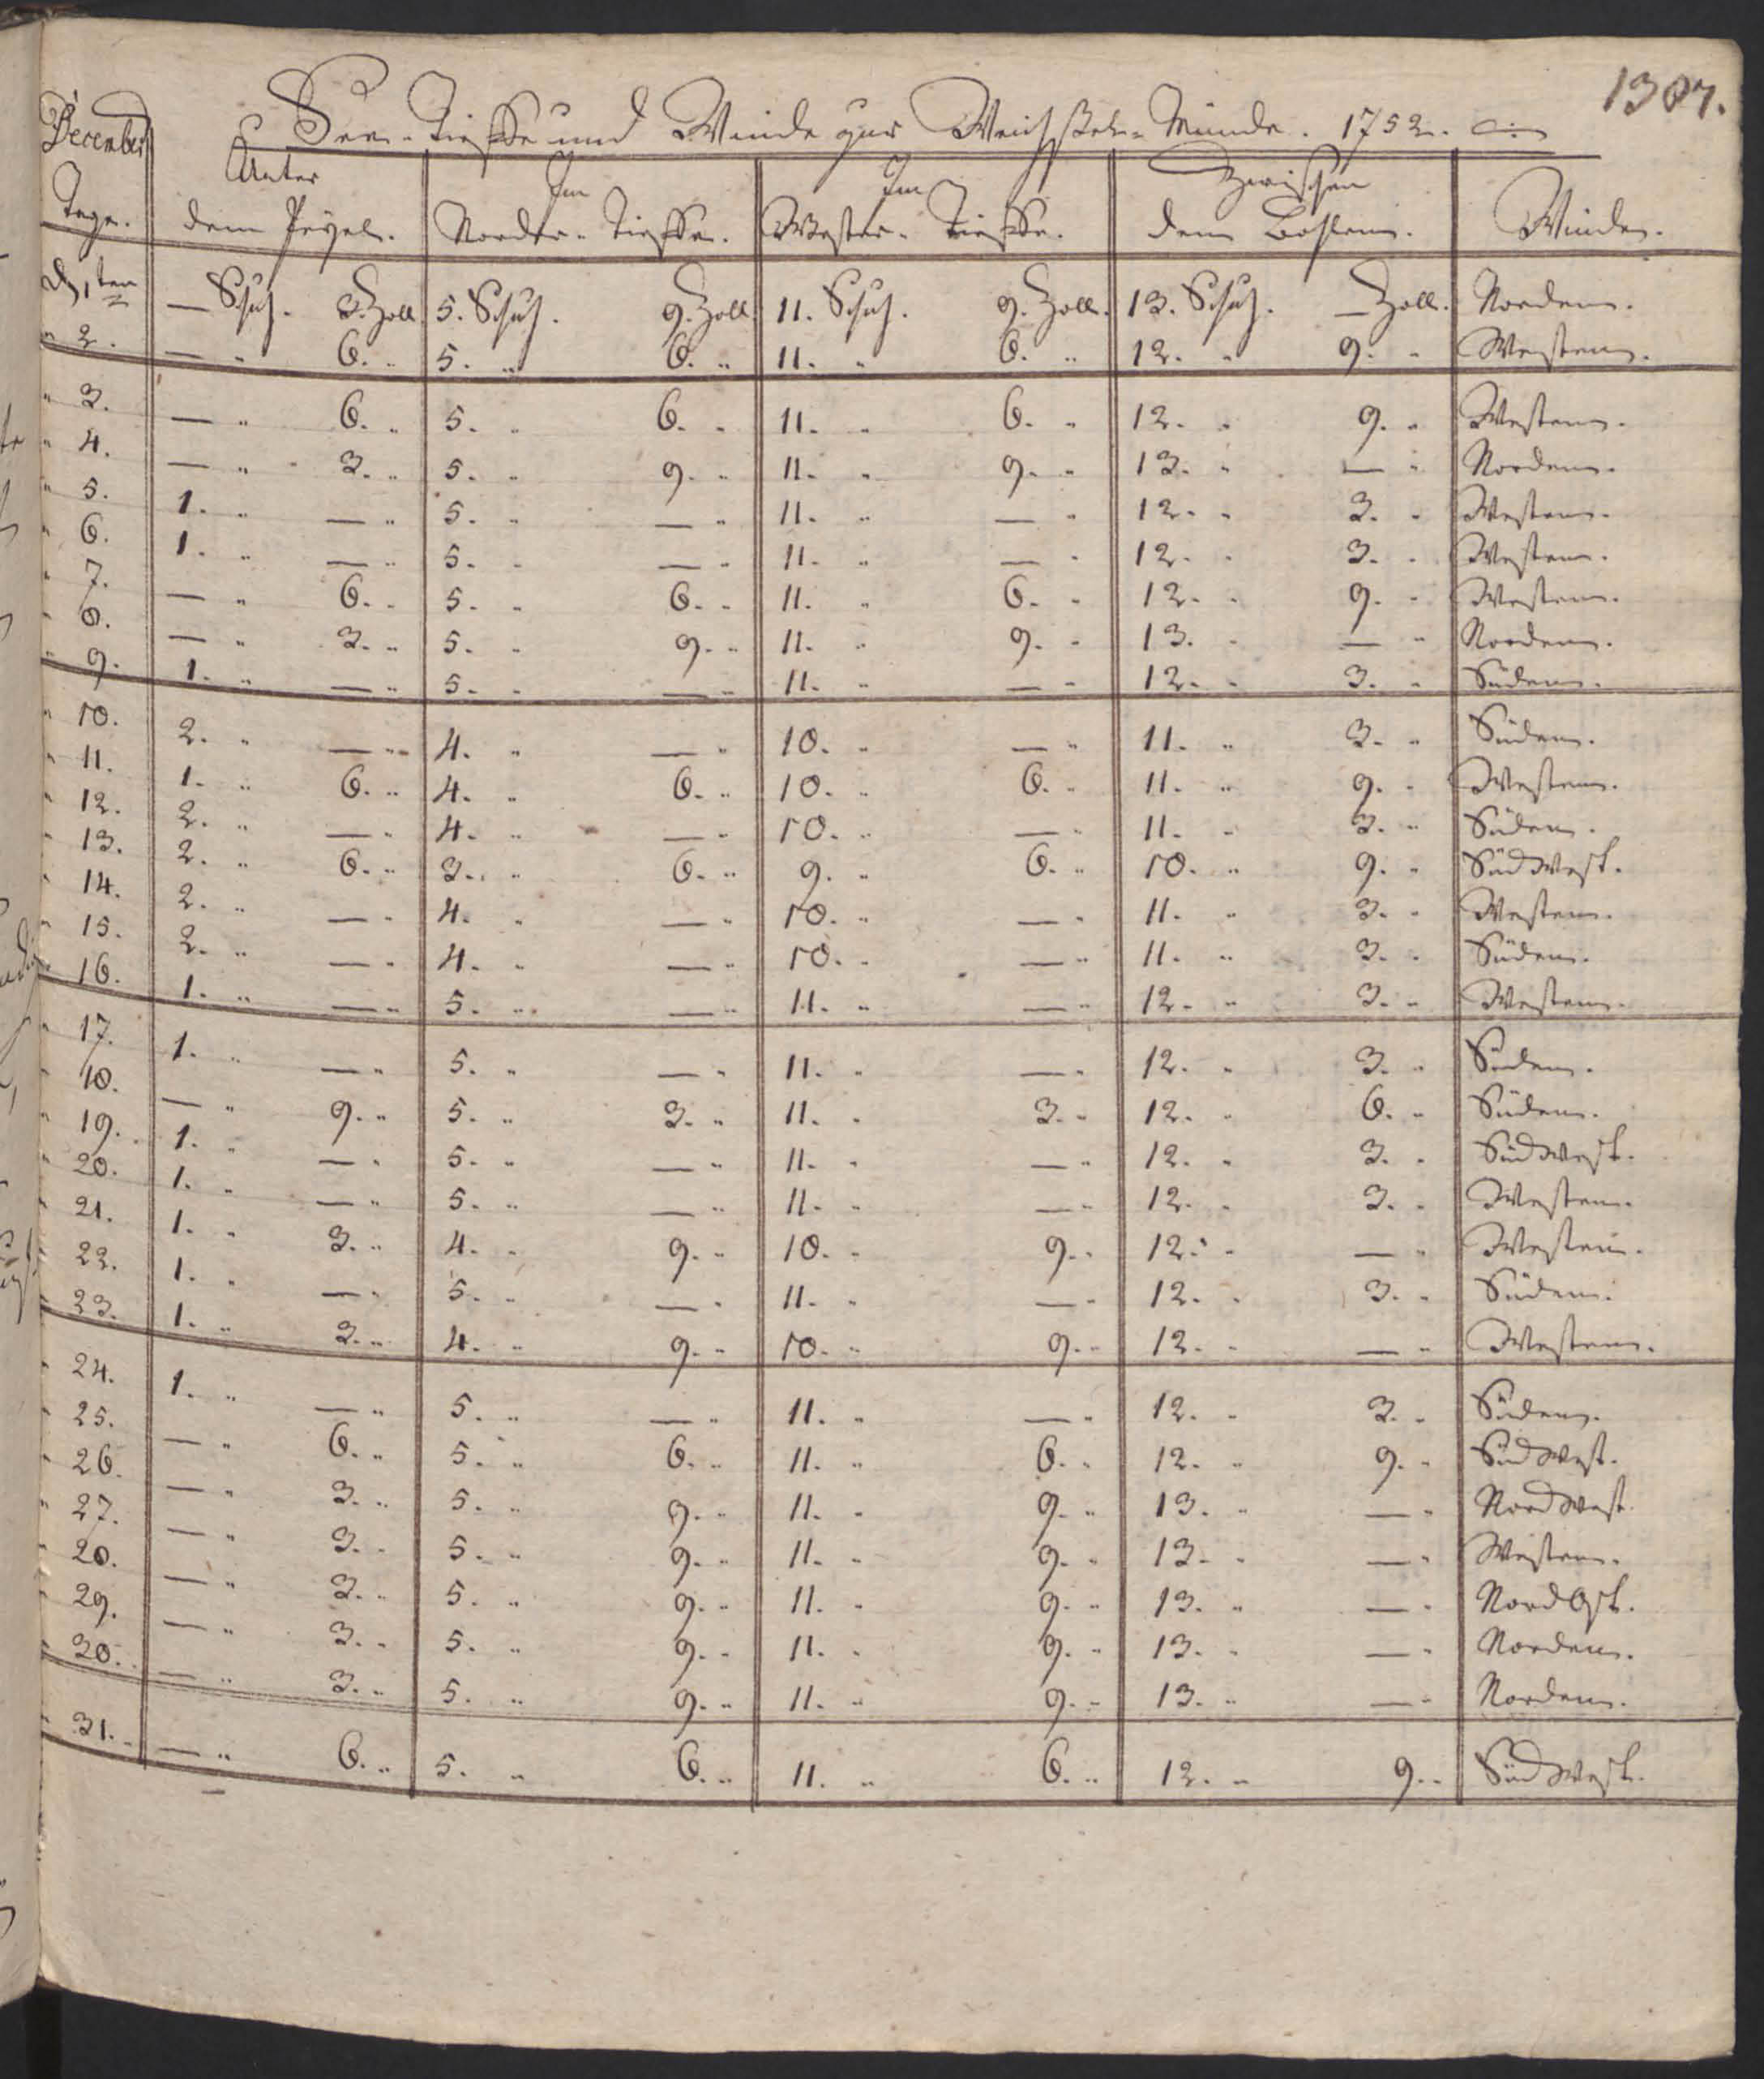 1307.
See-Tieffe und Winde zur Weichßel-Münde. 1752.
December
Tage. Unter dem Peyel. Im Norder-Tieffe. Im Wester-Tieffe. Zwischen dem Bohlen. Winden.
D 1ten — Schuh. 3. Zoll. 5. Schuh. 9. Zoll. 11. Schuh. 9. Zoll. 13. Schuh. — Zoll. Norden.
" 2. — " 6. " 5. " 6. " 11. " 6. " 12. " 9. " Westen.
" 3. — " 6. " 5. " 6. " 11. " 6. " 12. " 9. " Westen.
" 4. — " 3. " 5. " 9. " 11. " 9. " 13. " — " Norden.
" 5. 1. " — " 5. " — " 11. " — " 12. " 3. " Westen.
" 6. 1. " — " 5. " — " 11. " — " 12. " 3. " Westen.
" 7. — " 6. " 5. " 6. " 11. " 6. " 12. " 9. " Westen.
" 8. — " 3. " 5. " 9. " 11. " 9. " 13. " — " Norden.
" 9. 1. " — " 5. " — " 11. " — " 12. " 3. " Süden.
" 10. 2. " — " 4. " — " 10. " — " 11. " 3. " Süden.
" 11. 1. " 6. " 4. " 6. " 10. " 6. " 11. " 9. " Westen.
" 12. 2. " — " 4. " — " 10. " — " 11. " 3. " Süden.
" 13. 2. " 6. " 3. " 6. " 9. " 6. " 10. " 9. " Südwest.
" 14. 2. " — " 4. " — " 10. " — " 11. " 3. " Westen.
" 15. 2. " — " 4. " — " 10. " — " 11. " 3. " Süden.
" 16. 1. " — " 5. " — " 11. " — " 12. " 3. " Westen.
" 17. 1. " — " 5. " — " 11. " — " 12. " 3. " Süden.
" 18. — " 9. " 5. " 3. " 11. " 3. " 12. " 6. " Süden.
" 19. 1. " — " 5. " — " 11. " — " 12. " 3. " Südwest.
" 20. 1. " — " 5. " — " 11. " — " 12. " 3. " Westen.
" 21. 1. " 3. " 4. " 9. " 10. " 9. " 12. " — " Westen.
" 22. 1. " — " 5. " — " 11. " — " 12. " 3. " Süden.
" 23. 1. " 3. " 4. " 9. " 10. " 9. " 12. " — " Westen.
" 24. 1. " — " 5. " — " 11. " — " 12. " 3. " Süden.
" 25. — " 6. " 5. " 6. " 11. " 6. " 12. " 9. " Südwest.
" 26. — " 3. " 5. " 9. " 11. " 9. " 13. " — " Nordwest.
" 27. — " 3. " 5. " 9. " 11. " 9. " 13. " — " Westen.
" 28. — " 3. " 5. " 9. " 11. " 9. " 13. " — " NordOst.
" 29. — " 3. " 5. " 9. " 11. " 9. " 13. " — " Norden.
" 30. — " 3. " 5. " 9. " 11. " 9. " 13. " — " Norden.
" 31. — " 6. " 5. " 6. " 11. " 6. " 12. " 9. " Südwest.